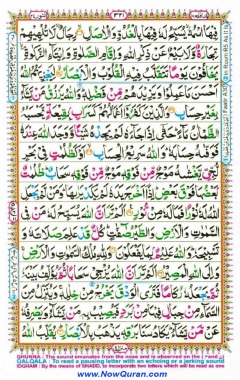 ٣٢١
فِيْهَا اسْمُهٗ يُسَبِّحُ لَهٗ فِيْهَا بِالْغُدُوِّ وَالْاٰصَالِ رِجَالٌ لَّا تُلْهِيْهِمْ
تِجَارَةٌ وَّلَا بَيْعٌ عَنْ ذِكْرِ اللّٰهِ وَاِقَامِ الصَّلٰوةِ وَاِيْتَآءِ الزَّكٰوةِ
يَخَافُوْنَ يَوْمًا تَتَقَلَّبُ فِيْهِ الْقُلُوْبُ وَالْاَبْصَارُ لِيَجْزِيَهُمُ
اللّٰهُ اَحْسَنَ مَا عَمِلُوْا وَيَزِيْدَهُمْ مِّنْ فَضْلِهٖ وَاللّٰهُ يَرْزُقُ مَنْ يَّشَآءُ
بِغَيْرِ حِسَابٍ وَالَّذِيْنَ كَفَرُوْٓا اَعْمَالُهُمْ كَسَرَابٍۭ بِقِيْعَةٍ يَّحْسَبُهُ
الظَّمْاٰنُ مَآءً حَتّٰٓى اِذَا جَآءَهٗ لَمْ يَجِدْهُ شَيْـًٔا وَّوَجَدَ اللّٰهَ عِنْدَهٗ
فَوَفّٰىهُ حِسَابَهٗ وَاللّٰهُ سَرِيْعُ الْحِسَابِ اَوْ كَظُلُمٰتٍ فِيْ بَحْرٍ
لُّجِّيٍّ يَّغْشٰىهُ مَوْجٌ مِّنْ فَوْقِهٖ مَوْجٌ مِّنْ فَوْقِهٖ سَحَابٌ ظُلُمٰتٌۢ
بَعْضُهَا فَوْقَ بَعْضٍ اِذَآ اَخْرَجَ يَدَهٗ لَمْ يَكَدْ يَرٰىهَا وَمَنْ لَّمْ يَجْعَلِ
اللّٰهُ لَهٗ نُوْرًا فَمَا لَهٗ مِنْ نُّوْرٍ اَلَمْ تَرَ اَنَّ اللّٰهَ يُسَبِّحُ لَهٗ مَنْ فِي
السَّمٰوٰتِ وَالْاَرْضِ وَالطَّيْرُ صٰٓفّٰتٍ كُلٌّ قَدْ عَلِمَ صَلَاتَهٗ وَ
تَسْبِيْحَهٗ وَاللّٰهُ عَلِيْمٌۢ بِمَا يَفْعَلُوْنَ وَلِلّٰهِ مُلْكُ السَّمٰوٰتِ وَالْاَرْضِ
وَاِلَى اللّٰهِ الْمَصِيْرُ اَلَمْ تَرَ اَنَّ اللّٰهَ يُزْجِيْ سَحَابًا ثُمَّ يُؤَلِّفُ
بَيْنَهٗ ثُمَّ يَجْعَلُهٗ رُكَامًا فَتَرَى الْوَدْقَ يَخْرُجُ مِنْ خِلٰلِهٖ وَيُنَزِّلُ
مِنَ السَّمَآءِ مِنْ جِبَالٍ فِيْهَا مِنْۢ بَرَدٍ فَيُصِيْبُ بِهٖ مَنْ يَّشَآءُ وَيَصْرِفُهٗ
عَنْ مَّنْ يَّشَآءُ يَكَادُ سَنَا بَرْقِهٖ يَذْهَبُ بِالْاَبْصَارِ يُقَلِّبُ اللّٰهُ
GHUNNA : The sound emanates from the nose and is observed on the
QALQALA : To read a pausing letter with an echoing or a jerking sound
IDGHAM : By the means of SHADD, to incorporate two letters which will be read as one
www.NowQuran.com